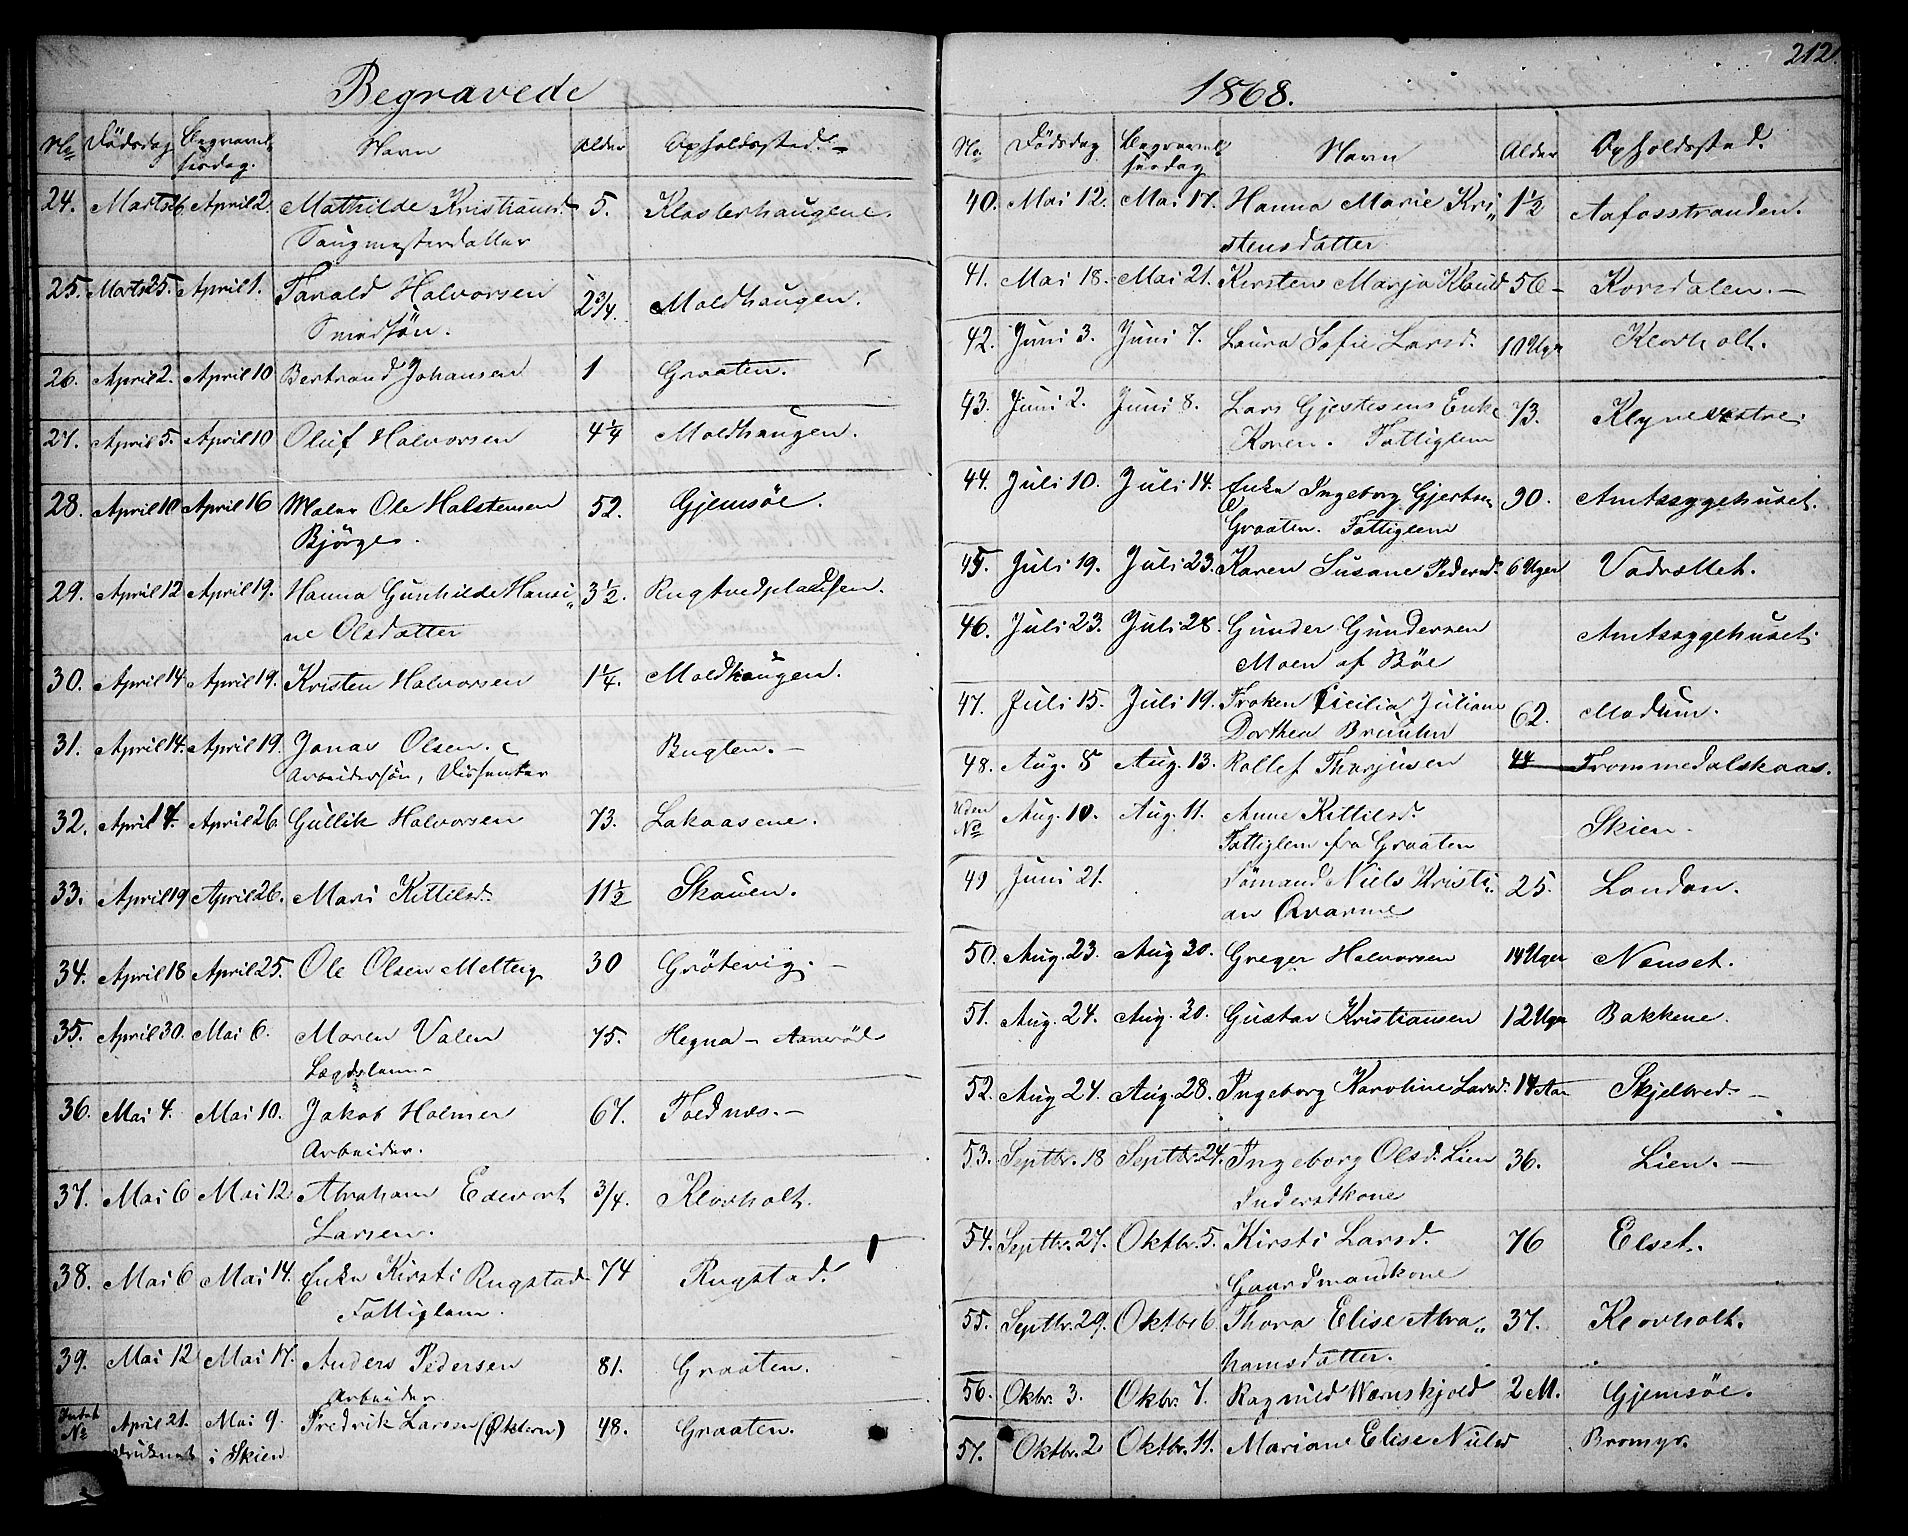 Begravede
No Dødsdag Begravelsesdag. Navn Alder Opholdssted.
24. Marts 26 April 2. Mathilde Kristiansd. 5. Klosterhaugene.
Saugmesterdatter
25. Marts 25. April 1. Tarald Halvorsen 2 3/4. Moldhaugen.
Smedsön.
26. April 2. April 10 Bertrand Johansen 1 Graaten.
27. April 5. April 10 Oluf Halvorsen 4 1/4 Moldhaugen.
28. April 10 April 16 Maler Ole Halstensen 52. Gjemsöe.
Bjørges.
29. April 12 April 19. Hanna Gunhilde Hansi„ 3 1/2. Rugtvedpladsen.
ne Olsdatter
30. April 14. April 19. Kristen Halvorsen 1 1/4. Moldhaugen.
31. April 14. April 19. Jonas Olsen. Bugten.
Arbeidersön,
32. April 17. April 26. Gullik Halvorsen 73. Lakaasene.
33. April 19 April 26. Mari Kittilsd. 11 1/2 Skauen.
34. April 18 April 25. Ole Olsen Melteig 30 Grötevig.
35. April 30. Mai 6. Maren Valen 75. Hegna - Aanerød
Lægdslem
36. Mai 4. Mai 10. Jakob Holmer 67. Toldnæs.
Arbeider.
37. Mai 6 Mai 12 Abraham Edevart 3/4. Klovholt.
Larsen.
38. Mai 6 Mai 14. Enke Kirsti Rugstad 74 Rugstad.
Fattiglem.
39. Mai 12 Mai 17. Anders Pedersen 81. Graaten.
Arbeider.
No April 21. Mai 9. Fredrik Larsen (Øktern) 48. Graaten.
druknet i Skien
212.
1868.
No. Dødsdag Begravelsesdag Navn Alder Opholdssted.
40. Mai 12. Mai 17. Hanna Marie Kri„ 1 1/2 Aafosstranden.
stensdatter
41. Mai 18. Mai 21. Kersten Marja 56 Korsdalen.
42. Juni 3. Juni 7. Laura Sofie Larsd. 10 Uger Klovholt.
43. Juni 2. Juni 8. Lars Gjestesens Enke 73. Klyve vestre.
Karen. Fattiglem
44. Juli 10. Juli 14. Enke Ingeborg Gjertsen 90. Amtssygehuset.
Graaten. Fattiglem
45. Juli 19. Juli 23. Karen Susane Pedersd. 6 Uger Vadrettet.
46. Juli 23. Juli 28. Gunder Gundersen Amtssygehuset.
Moen af Böe
47. Juli 15. Juli 19. Frøken Cicilia Juliane 62. Modum.
Dorthea
48. Aug. 8 Aug. 13. Rollef Thorjusen 44 Frommedalskaas.
Uden No Aug. 10. Aug. 11. Anne Kittilsd. Skien.
Fattiglem fra Graaten
49 Juni 21. Sömand Niels Kristi„ 25. London.
an Qvarme
50. Aug. 23. Aug 30. Greger Halvorsen 14 Uger Nenset.
51. Aug. 24. Aug. 30. Gustav Kristiansen 12 Uger Bakkene.
52. Aug 24. Aug. 28. Ingeborg Karoline Larsd. 14 Aar Skjelbred.
53. Septbr. 18 Septbr. 24. Ingeborg Olsd. Lien 36. Lien.
Inderstkone
54. Septbr. 27. Oktbr. 5. Kirsti Larsd. 76 Elset.
Gaardmandskone
55. Septbr. 29. Oktbr 6 Thora Elise Abra„ 37. Klovholt.
hamsdatter.
56. Okbr. 3. Okbr. 7. Ragnild Wærnskjold 2 M. Gjemsöe.
57. Oktbr. 2 Oktbr. 11. Mariane Elise Nilsd Bromyr.